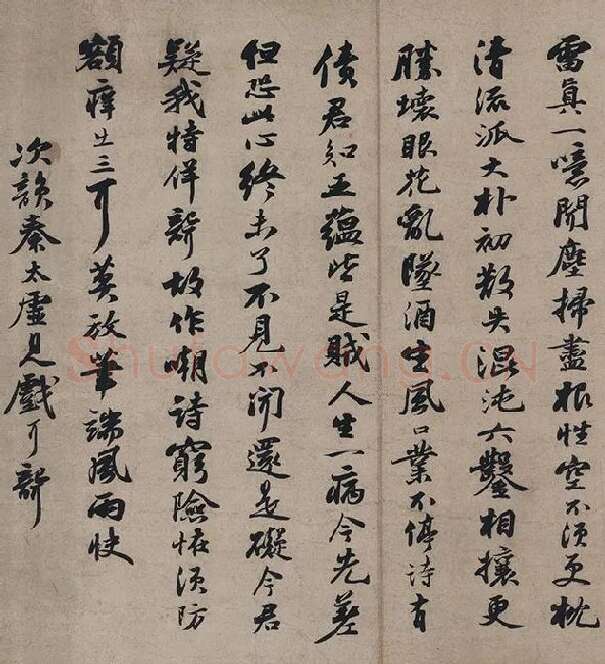 雷真一噫聞塵掃盡根性空不須更枕
清流派大朴初散失混沌六鑿相攘更
勝壞眼花亂墜酒生風口業不停詩有
債君知五蘊皆是賊人生一病今先差
但恐此心終未了不見不聞還是礙今君
疑我特佯聾故作嘲詩窮險怪須防
額癢出三耳莫放筆端風雨快
次韻秦太虛見戲耳聾
Shufawang.CN